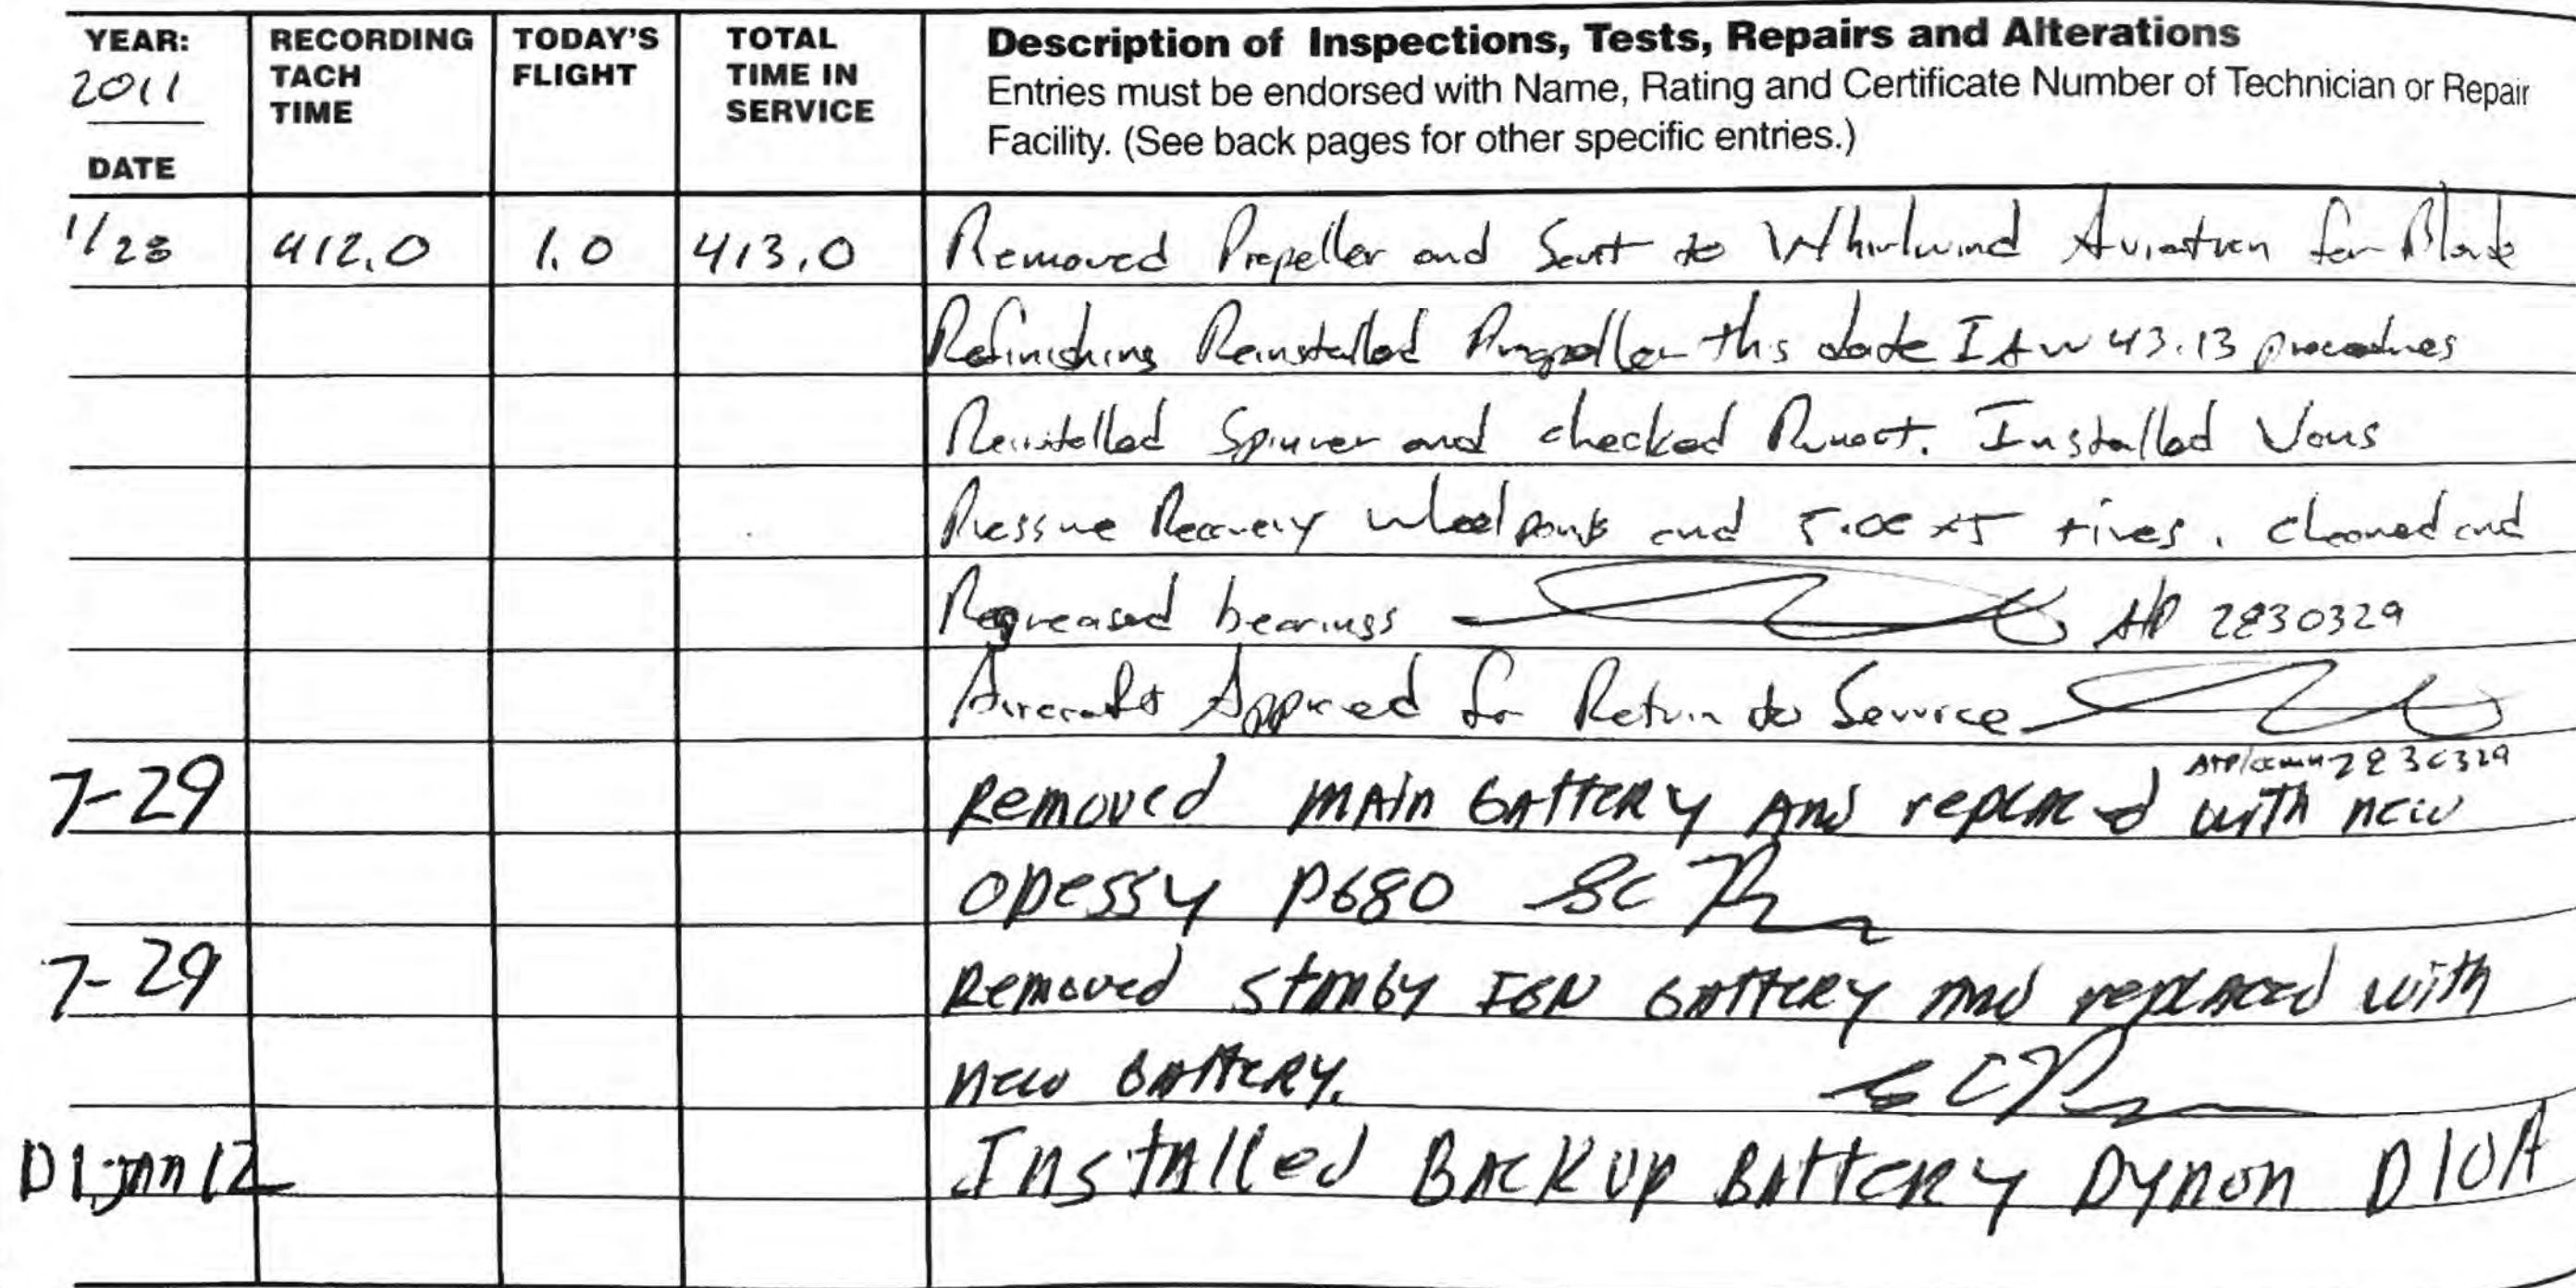 YEAR: RECORDING TODAY'S TOTAL Description of Inspections, Tests, Repairs and Alterations
2011 TACH FLIGHT TIME IN Entries must be endorsed with Name, Rating and Certificate Number of Technician or Repair
TIME SERVICE Facility. (See back pages for other specific entries.)
DATE
1/23 412.0 1.0 413.0 Removed Propeller and Sent to Whirlwind Aviation for Blade
Refinishing Reinstalled Propeller this date IAW 43.13 procedures
Reinstalled Spinner and checked Runout. Installed Vans
Pressure Recovery wheel pants and 5.00 x5 tires. cleaned and
Regreased bearings A&P 2830329
Aircraft Approved for Return to Service
2830329
7-29 Removed MAin BATTERY AND replaced with new
ODessy P680
7-29 Removed STANBY IGN BATTERY AND replaced with
new BATTERY.
01 JAN 12 Installed BACKUP BATTERY Dynon D10A